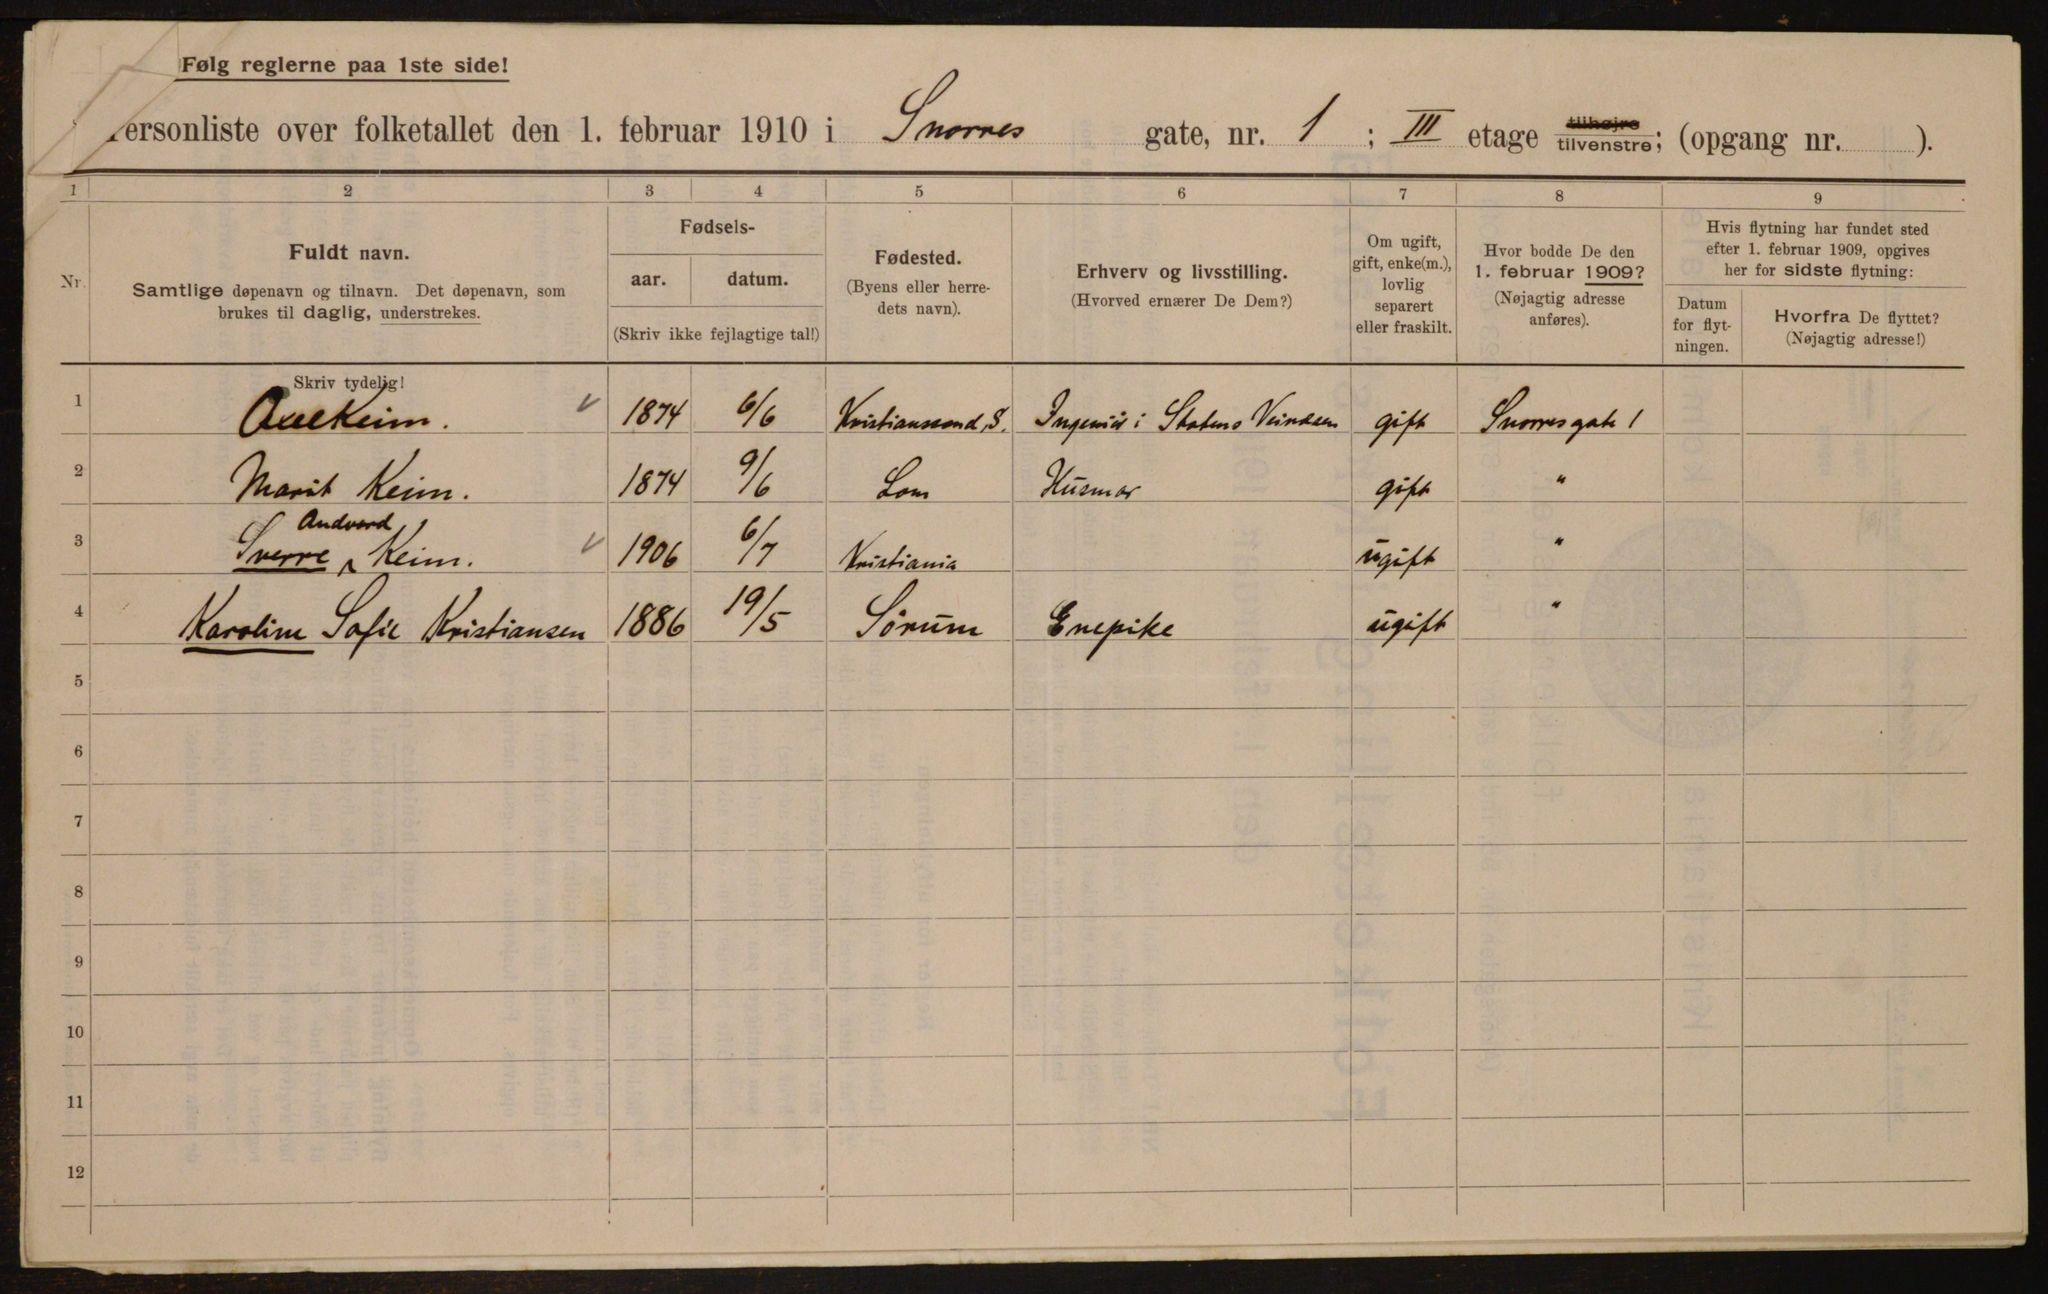 Følg reglerne paa 1ste side!
Personliste over folketallet den 1. februar 1910 i Snorres gate, nr. 1 ; III etage tilhøjre tilvenstre; (opgang nr. ).
1 2 3 4 5 6 7 8 9
Nr.
Fuldt navn.
Samtlige døpenavn og tilnavn. Det døpenavn, som
brukes til daglig, understrekes.
Fødsels-
aar. datum.
(Skriv ikke fejlagtige tal!)
Fødested.
(Byens eller herre-
dets navn).
Erhverv og livsstilling.
(Hvorved ernærer De Dem?)
Om ugift,
gift, enke(m.),
lovlig
separert
eller fraskilt.
Hvor bodde De den
1. februar 1909?
(Nøjagtig adresse
anføres).
Hvis flytning har fundet sted
efter 1. februar 1909, opgives
her for sidste flytning:
Datum
for flyt-
ningen.
Hvorfra De flyttet?
(Nøjagtig adresse!)
Skriv tydelig!
1 Axel Keim. 1874 6/6 Kristianssand, S. Ingeniør i Statens gift Snorresgate 1
2 Marit Keim. 1874 9/6 Lom Husmor gift "
Andvord
3 Sverre Keim. 1906 6/7 Kristiania ugift "
4 Karoline Sofie Kristiansen 1886 19/5 Sørum Enepike ugift "
5
6
7
8
9
10
11
12